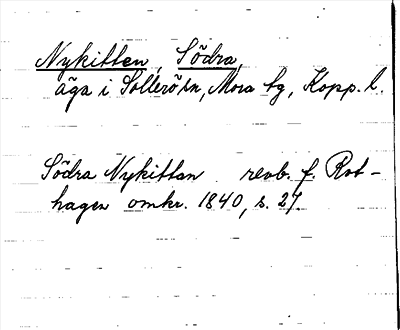 Nykitten, Södra,
äga i Sollerön, Mora tg, Kopp. l.
Södra Nykittan revb. f. Rot-
hagen omkr. 1840, s. 27.